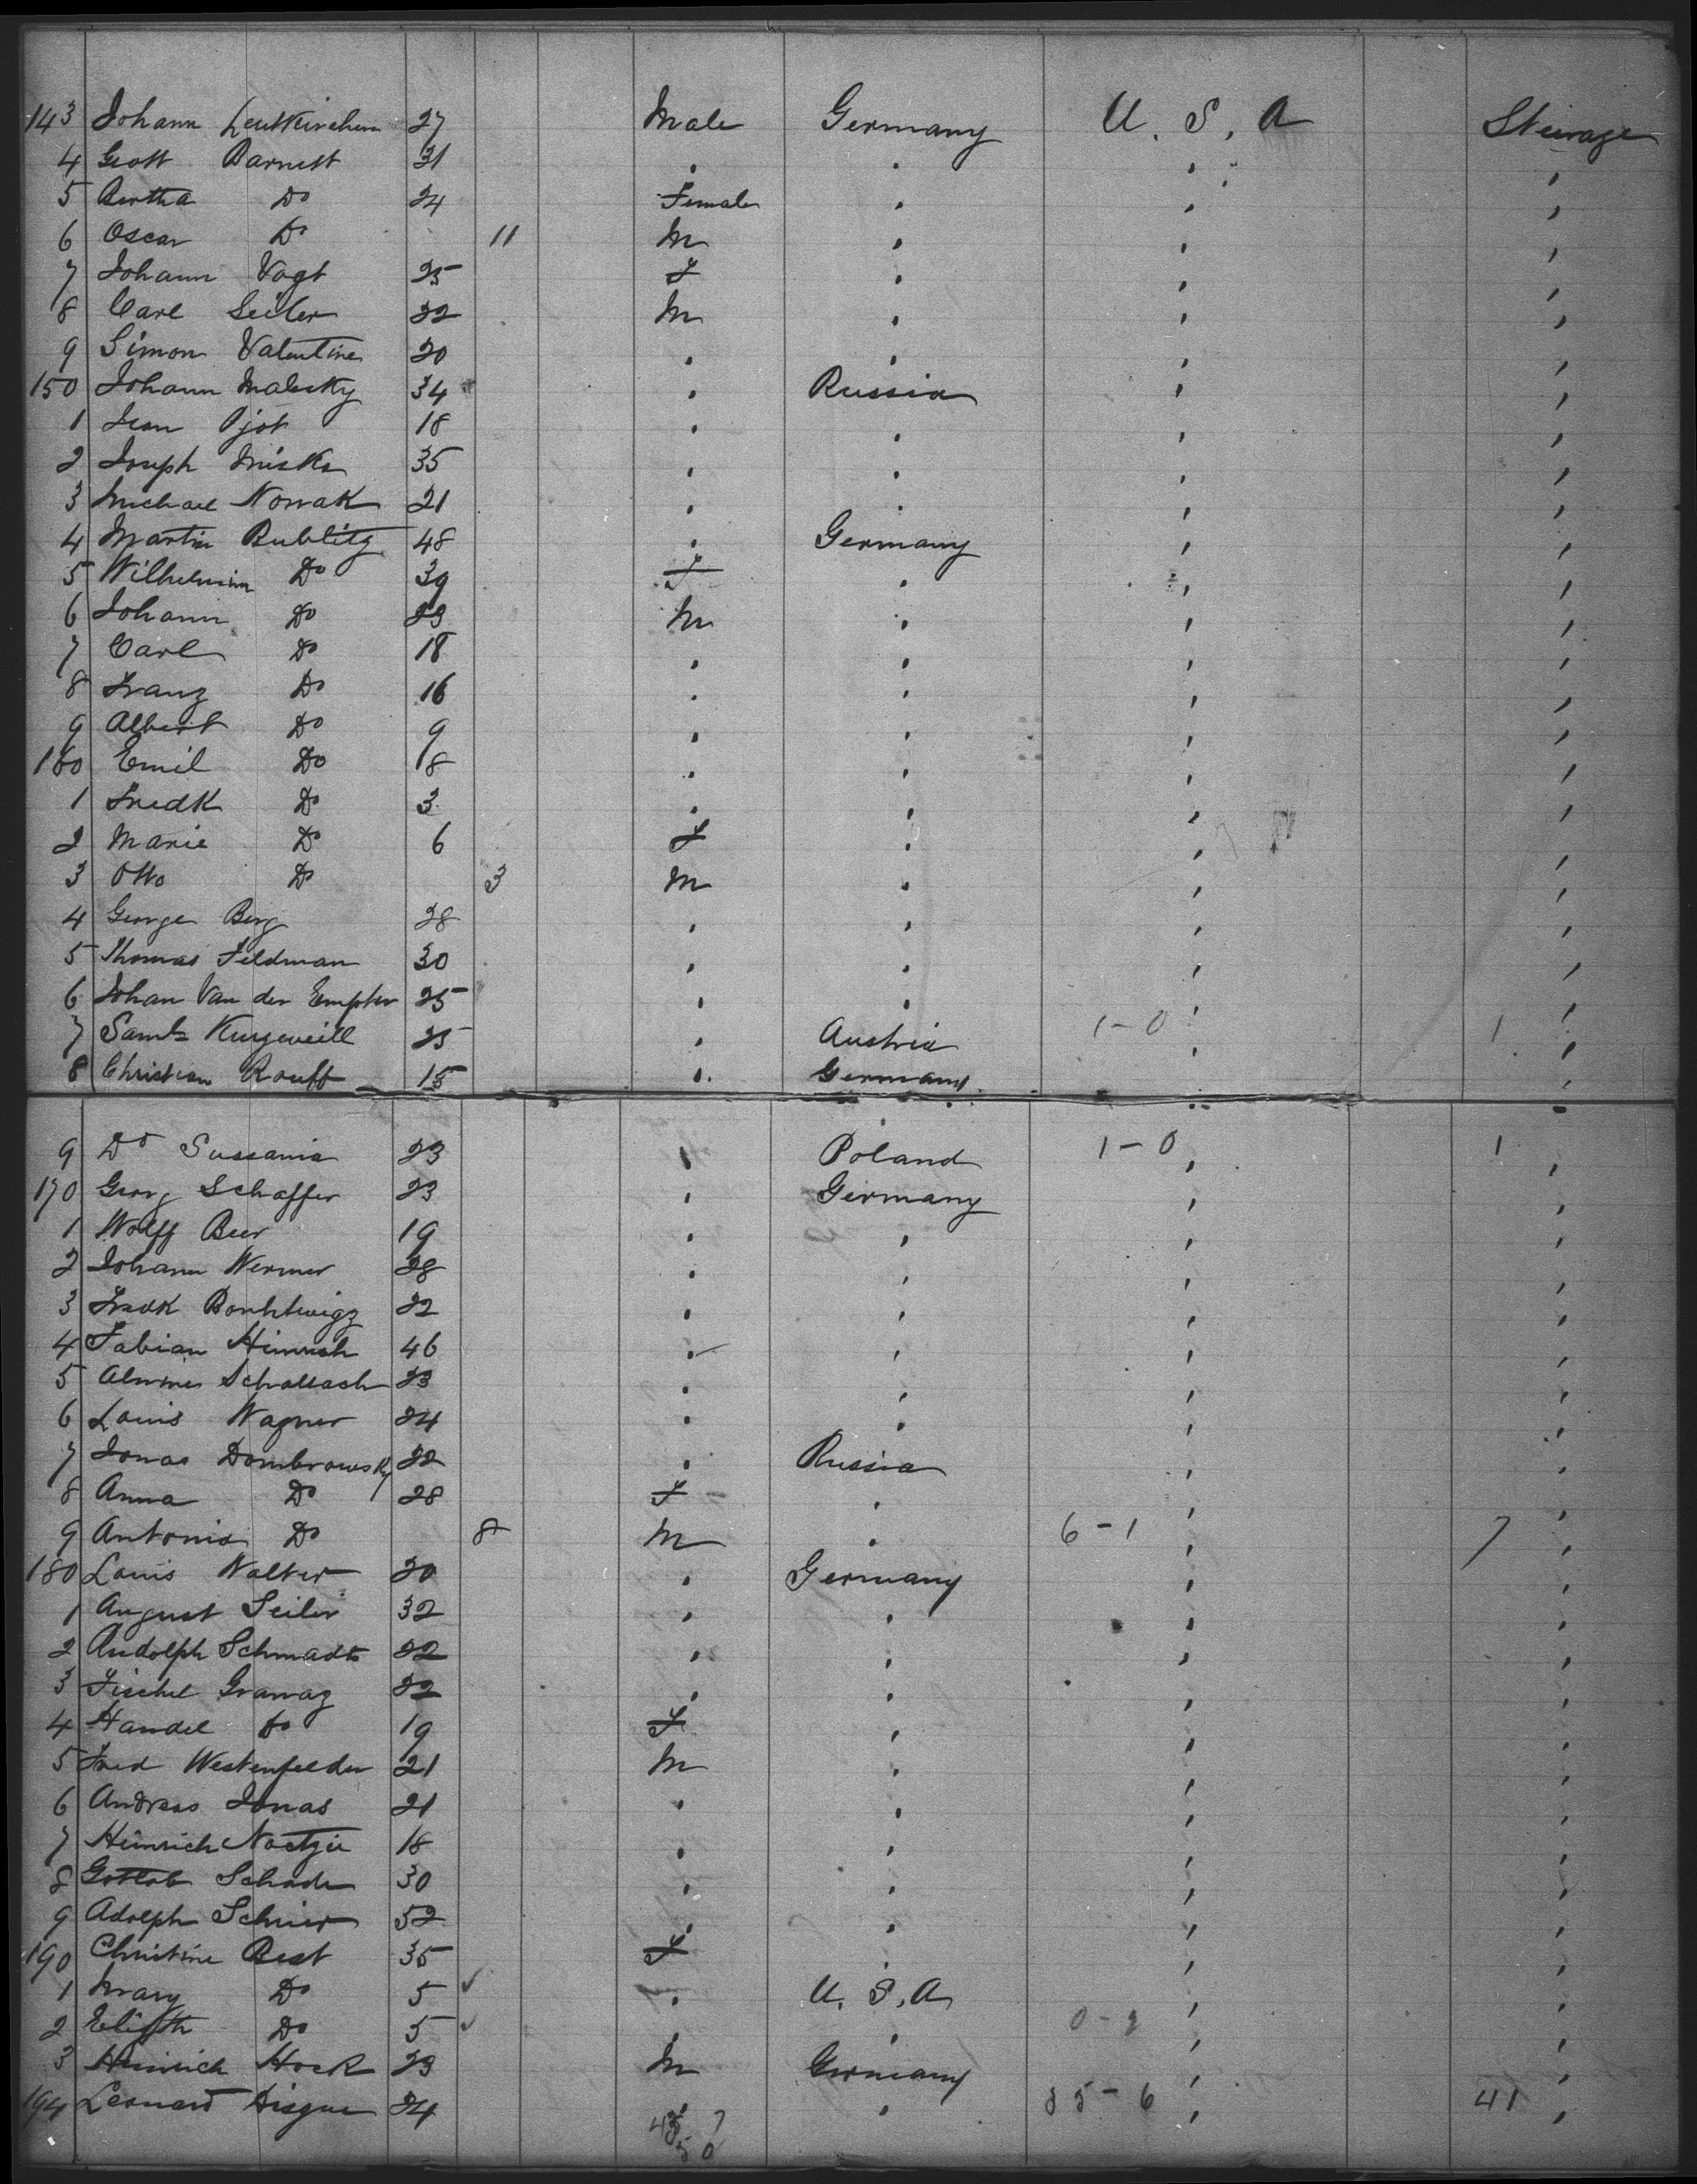 143 Johann Leutkirchen 27 Male Germany U. S. A Steerage
4 Gott Barnett 31 " " " "
5 Bertha Do 24 Female " " "
6 Oscar Do 11 M " " "
7 Johann Vogt 25 F " " "
8 Carl Seiler 32 M " " "
9 Simon Valentine 20 " " " "
150 Johann Malecky 34 " Russia " "
1 Jean Pjot 18 " " " "
2 Joseph Miska 35 " " " "
3 Michael Nowak 21 " " " "
4 Martin Bublitz 48 " Germany " "
5 Wilhelmina Do 39 F " " "
6 Johann Do 23 M " " "
7 Carl Do 18 " " " "
8 Franz Do 16 " " " "
9 Albert Do 9 " " " "
160 Emil Do 18 " " " "
1 Fredk Do 3 " " " "
2 Marie Do 6 F " " "
3 Otto Do 3 M " " "
4 George Berg 28 " " " "
5 Thomas Feldman 30 " " " "
6 Johan Van der Empter 25 " " " "
7 Saml Kurzweill 25 " Austria 1-0 " 1 "
8 Christian Rouff 15 " Germany " "
9 Do Sussania 23 " Poland 1-0 " 1 "
170 Georg Schaffer 23 " Germany " "
1 Wolff Beer 19 " " " "
2 Johann Wermer 28 " " " "
3 Fredk 22 " " " "
4 Fabian Heinrich 46 " " " "
5 Schallach 23 " " " "
6 Louis Wagner 24 " " " "
7 Jonas Dombrowsky 22 " Russia " "
8 Anna Do 28 F " " "
9 Antonia Do 8 M " 6-1 " 7 "
180 Louis Walter 20 " Germany " "
1 August Seiler 32 " " " "
2 Rudolph Schmadt 22 " " " "
3 Fischel Gramaz 22 " " " "
4 Handel Do 19 F " " "
5 Fred Westenfelder 21 M " " "
6 Andreas Jonas 21 " " " "
7 Heinrich Noetzie 18 " " " "
8 Gottlob Schade 30 " " " "
9 Adolph Schier 52 " " " "
190 Christine Best 35 F " " "
1 Mary Do 5 " U. S. A " "
2 Elisth Do 5 " " 0-2 " "
3 Heinrich Hock 23 M Germany " "
194 Leonard Disque 24 " " 35-6 " 41 "